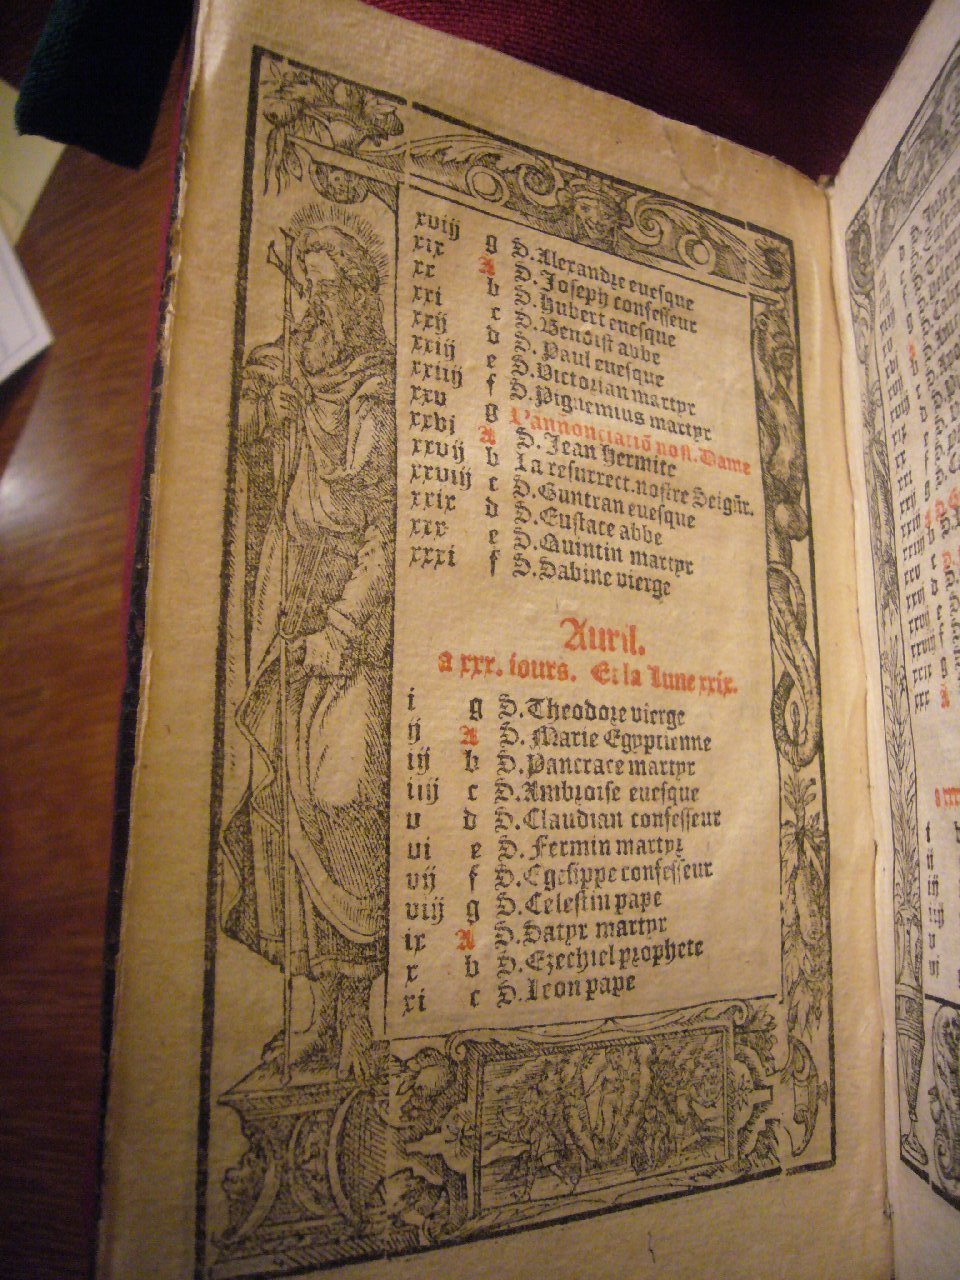 xviij g S. Alexandre evesque
xix A S. Joseph confesseur
xx b S. Hubert evesque
xxi c S. Benoist abbe
xxij d S. Paul evesque
xxiij e S. Victorian martyr
xxiiij f S. Pigmenius martyr
xxv g L'annonciatiō nost. Dame
xxvj A S. Jean hermite
xxvij b La resurrect. nostre Seign̄r.
xxviij c S. Guntran evesque
xxix d S. Eustace abbe
xxx e S. Quintin martyr
xxxi f S. Sabine vierge
Avril.
a xxx. iours. Et la Lune xxix.
i g S. Theodore vierge
ij A S. Marie Egyptienne
iij b S. Pancrace martyr
iiij c S. Ambroise evesque
v d S. Claudian confesseur
vi e S. Fermin martyr
vij f S. Egesippe confesseur
viij g S. Celestin pape
ix A S. Satyr martyr
x b S. Ezechiel prophete
xi c S. Leon pape